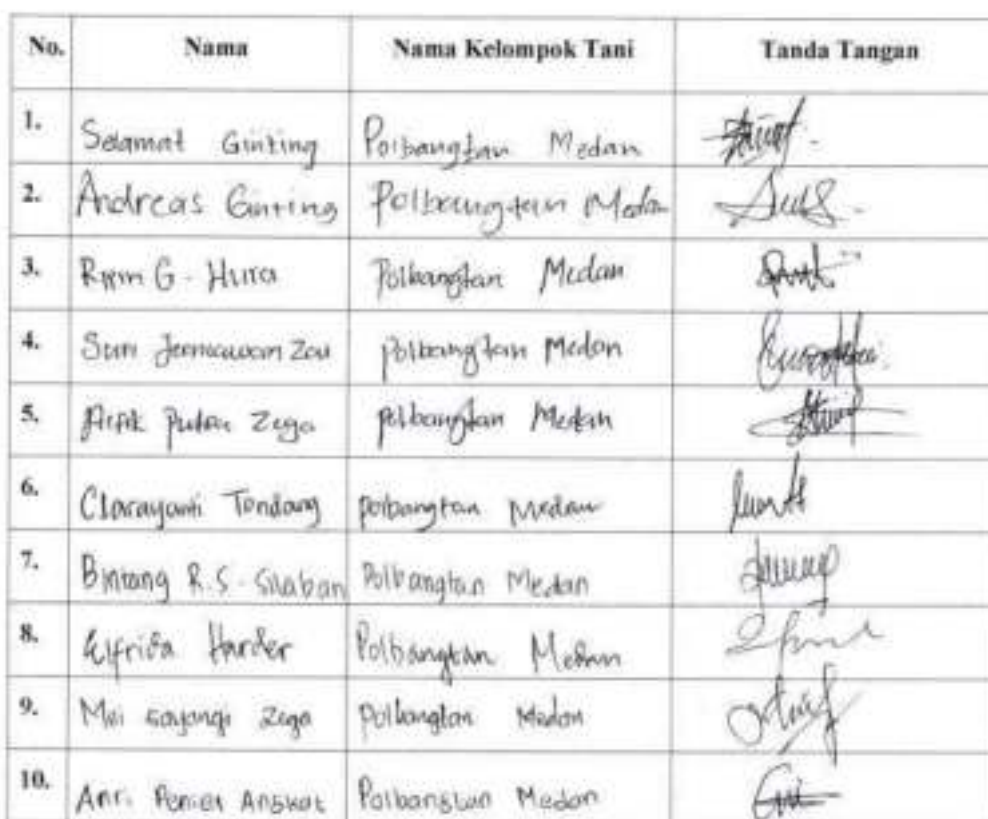 No. Nama Nama Kelompok Tani Tanda Tangan
1. Selamat Ginting Polbangtan Medan
2. Andreas Ginting Polbangtan Medan
3. G. Hura Polbangtan Medan
4. Polbangtan Medan
5. Putra Zega polbangtan Medan
6. Clarayanti Tondang polbangtan Medan
7. Bintang R.S. Silaban Polbangtan Medan
8. Elfrida Harder Polbangtan Medan
9. Mei sayangi Zega Polbangtan Medan
10. Angkat Polbangtan Medan